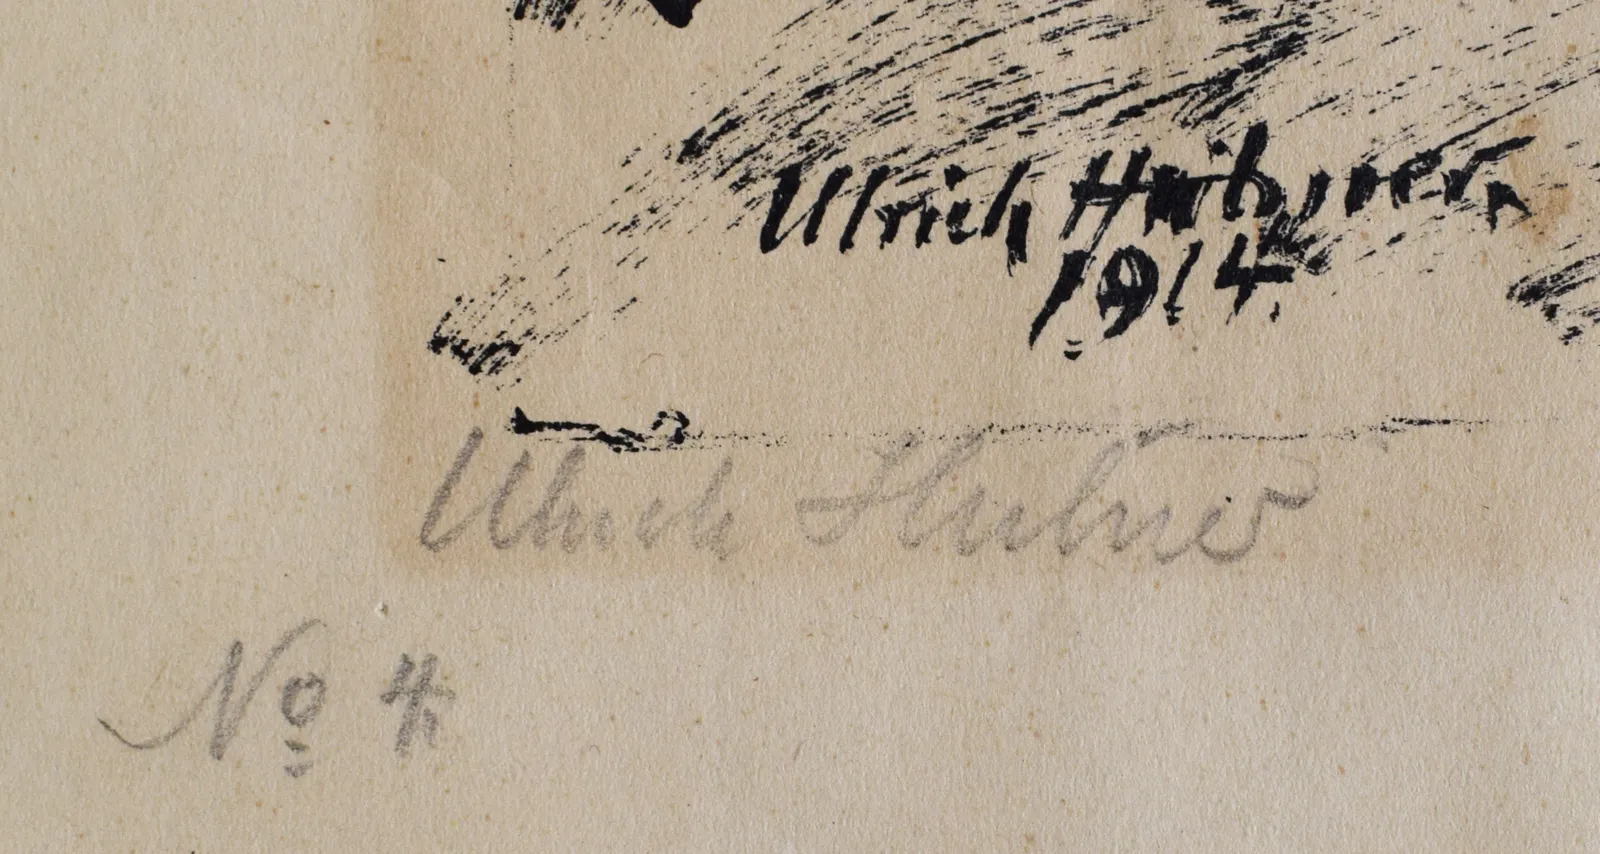 Ulrich Hübner
1914.
Ulrich Hübner
No 4